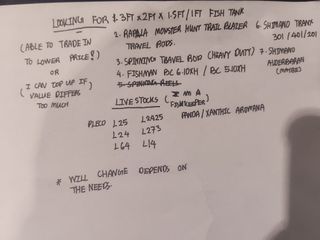 LOOKING FOR
1. 3FT x 2FT x 1.5FT/1FT FISH TANK
2. RAPALA MONSTER HUNT TRAIL BLAZER TRAVEL RODS.
3. SPINNING TRAVEL ROD (HEAVY DUTY)
4. FISHMAN BC 6.10XH / BC 5.10XH
5. SPINNING REELS
6. SHIMANO TRANX 301 / 401 / 201
7. SHIMANO ALDEBARAN
(ABLE TO TRADE IN
TO LOWER PRICE!)
OR
( I CAN TOP UP IF
VALUE DIFFERS
TOO MUCH )
LIVESTOCKS (I'M A FISHKEEPER)
PLECO L25 L2A25 PANDA/XANTHIC AROWANA
L24 L273
L64 L14
* WILL CHANGE DEPENDS ON
THE NEEDS.